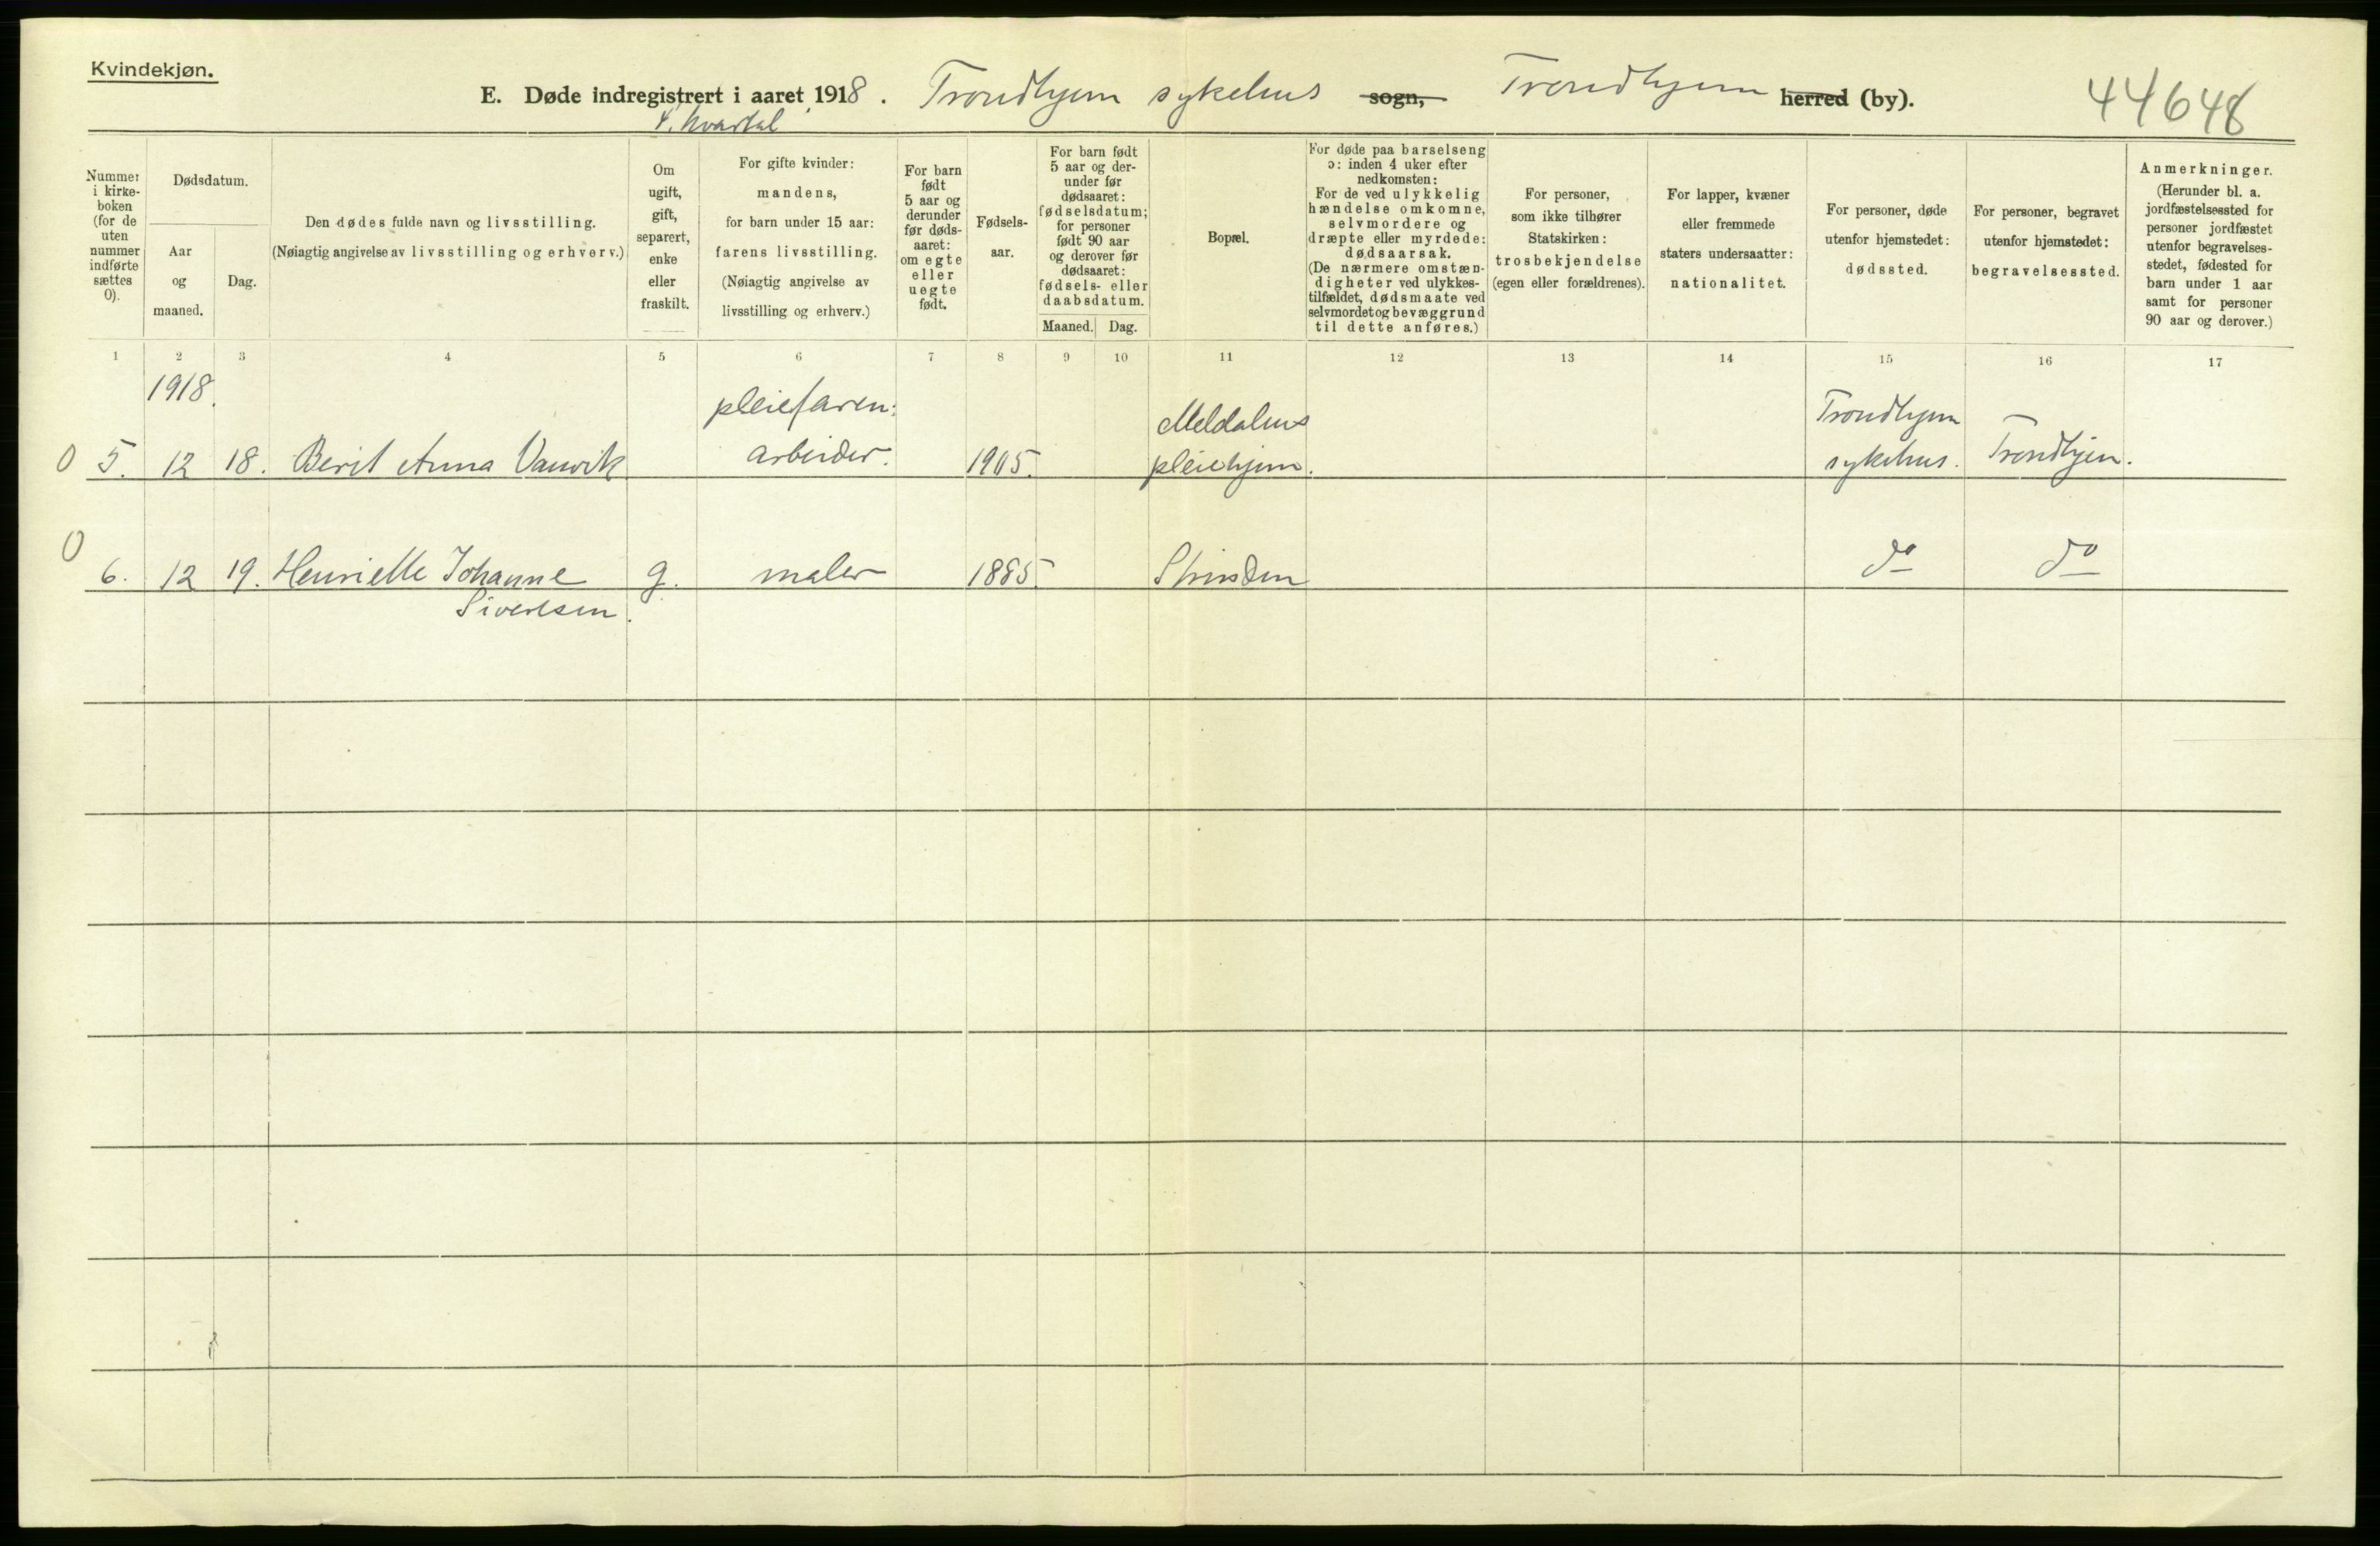 Kvindekjøn.
E. Døde indregistrert i aaret 1918. Trondhjem sykehus sogn, Trondhjem herred (by). 44648
4. kvartal
Nummer i kirke-boken (for de uten nummer indførte sættes 0).
Dødsdatum.
Aar og maaned.
Dag.
Den dødes fulde navn og livsstilling.
(Nøiagtig angivelse av livsstilling og erhverv.)
Om ugift, gift, separert, enke eller fraskilt.
For gifte kvinder: mandens, for barn under 15 aar: farens livsstilling. (Nøiagtig angivelse av livsstilling og erhverv.)
For barn født 5 aar og derunder før døds-aaret: om egte eller uegte født.
Fødsels-aar.
For barn født 5 aar og der-under før dødsaaret: fødselsdatum; for personer født 90 aar og derover før dødsaaret: fødsels- eller daabsdatum.
Maaned. Dag.
Bopæl.
For døde paa barselseng ɔ: inden 4 uker efter nedkomsten: For de ved ulykkelig hændelse omkomne, selvmordere og dræpte eller myrdede: dødsaarsak. (De nærmere omstæn-digheter ved ulykkes-tilfældet, dødsmaate ved selvmordet og bevæggrund til dette anføres.)
For personer, som ikke tilhører Statskirken: trosbekjendelse (egen eller forældrenes).
For lapper, kvæner eller fremmede staters undersaatter: nationalitet.
For personer, døde utenfor hjemstedet: dødssted.
For personer, begravet utenfor hjemstedet: begravelsessted.
Anmerkninger. (Herunder bl. a. jordfæstelsessted for personer jordfæstet utenfor begravelses-stedet, fødested for barn under 1 aar samt for personer 90 aar og derover.)
1 2 3 4 5 6 7 8 9 10 11 12 13 14 15 16 17
1918.
pleiefaren: Meldalens Trondhjem
0 5. 12 18. Berit Anna Vanvik arbeider. 1905. pleiehjem. sykehus. Trondhjem.
0 6. 12 19. Henriette Johanne g. maler 1885. Strinden do do
Sivertsen.